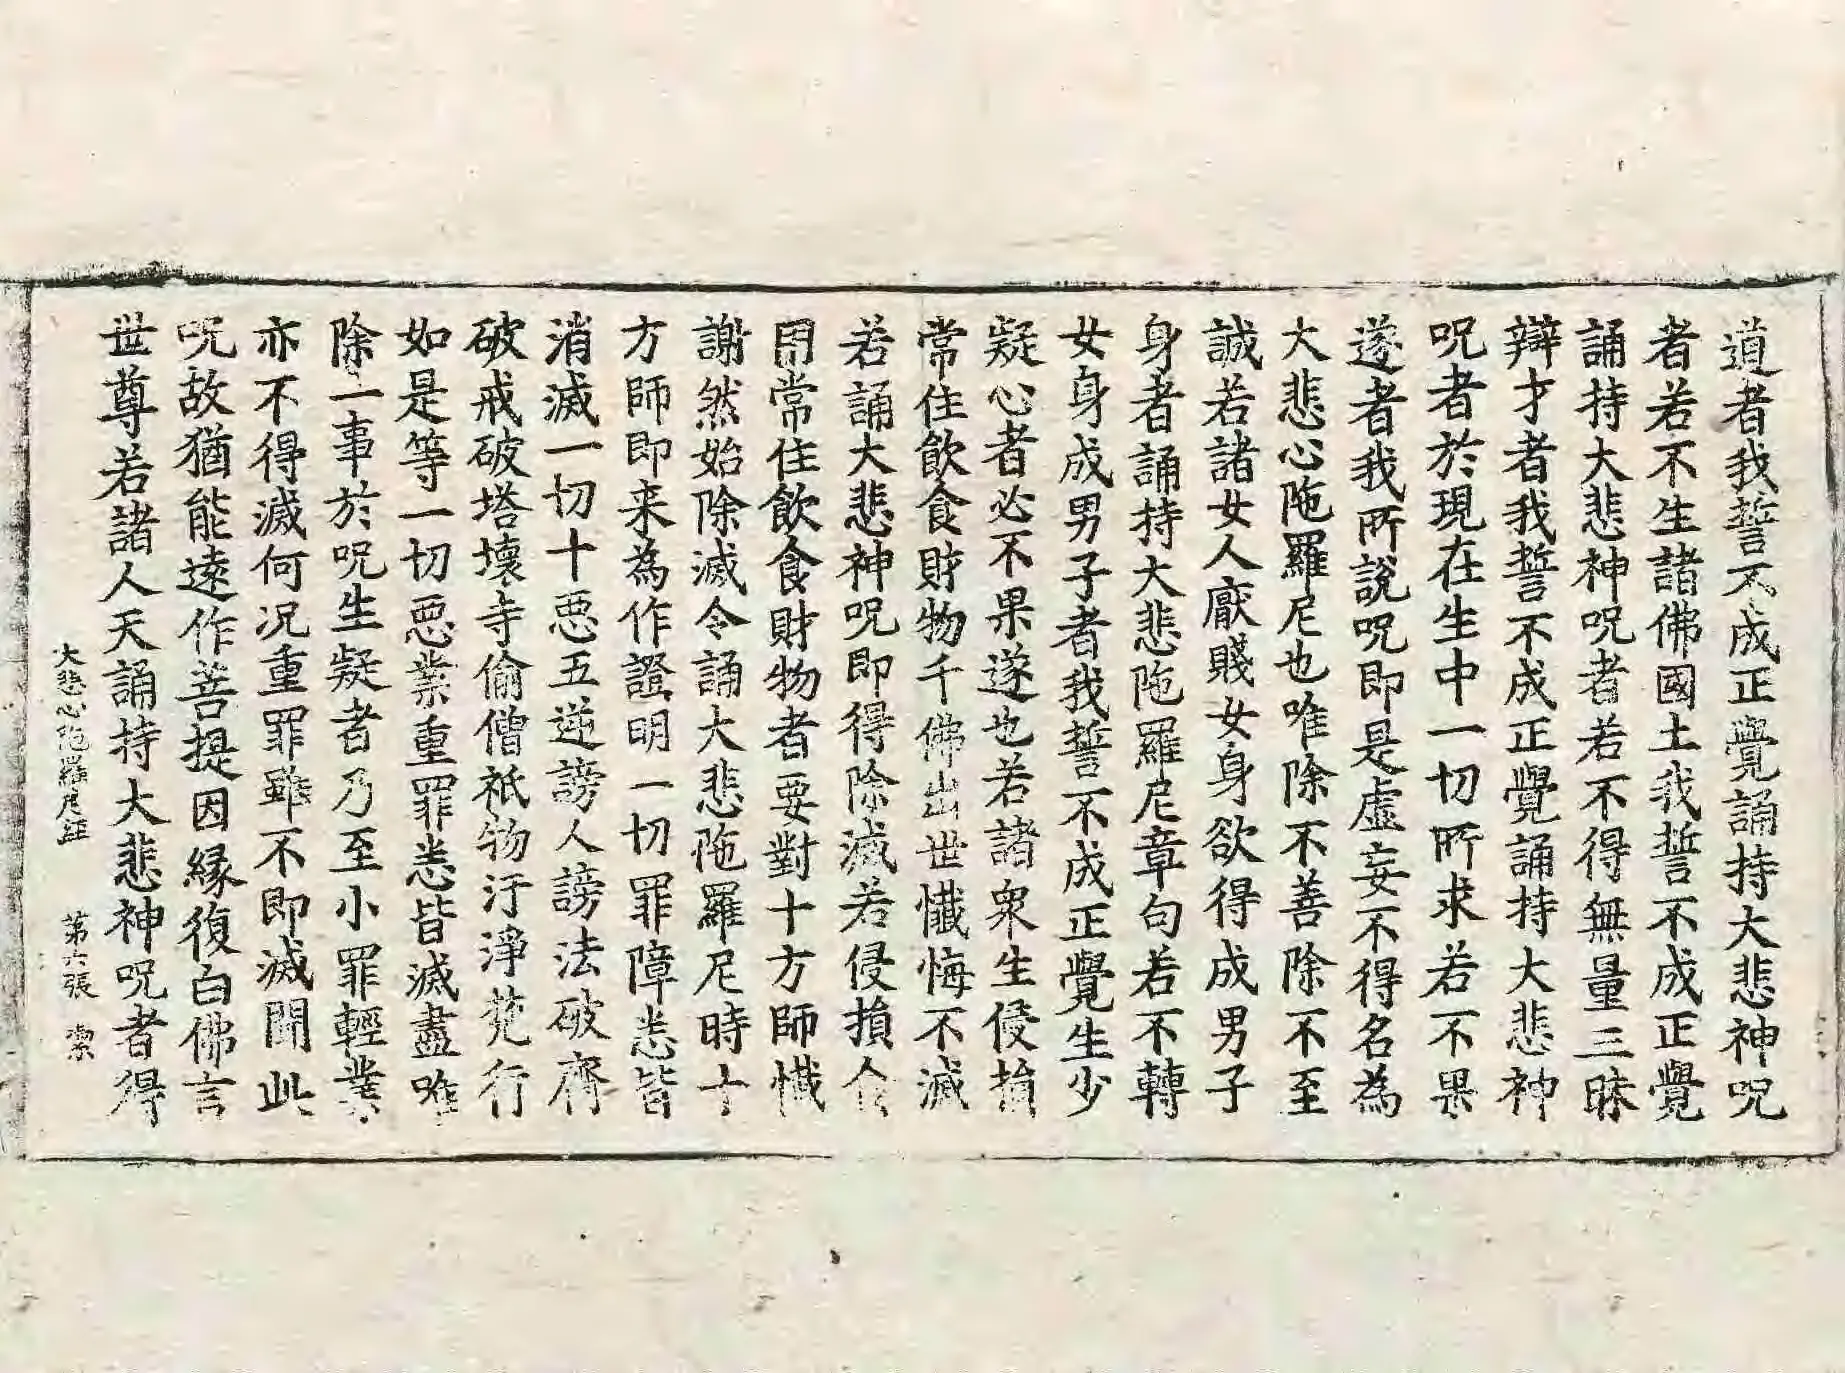 道者我誓不成正覺誦持大悲神呪
者若不生諸佛國土我誓不成正覺
誦持大悲神呪者若不得無量三昧
辯才者我誓不成正覺誦持大悲神
呪者於現在生中一切所求若不果
遂者我所說呪即是虛妄不得名為
大悲心陁羅尼也唯除不善除不至
誠若諸女人厭賤女身欲得成男子
身者誦持大悲陁羅尼章句若不轉
女身成男子者我誓不成正覺生少
疑心者必不果遂也若諸衆生侵損
常住飲食財物千佛出世懺悔不滅
若誦大悲神呪即得除滅若侵損食
用常住飲食財物者要對十方師懺
謝然始除滅今誦大悲陁羅尼時十
方師即来為作證明一切罪障悉皆
消滅一切十惡五逆謗人謗法破齊
破戒破塔壞寺偷僧祇物汙淨梵行
如是等一切惡業重罪悉皆滅盡唯
除一事於呪生疑者乃至小罪輕業
亦不得滅何況重罪雖不即滅聞此
呪故猶能遠作菩提因緣復白佛言
世尊若諸人天誦持大悲神呪者得
大悲心陁羅尼経 第六張 潔